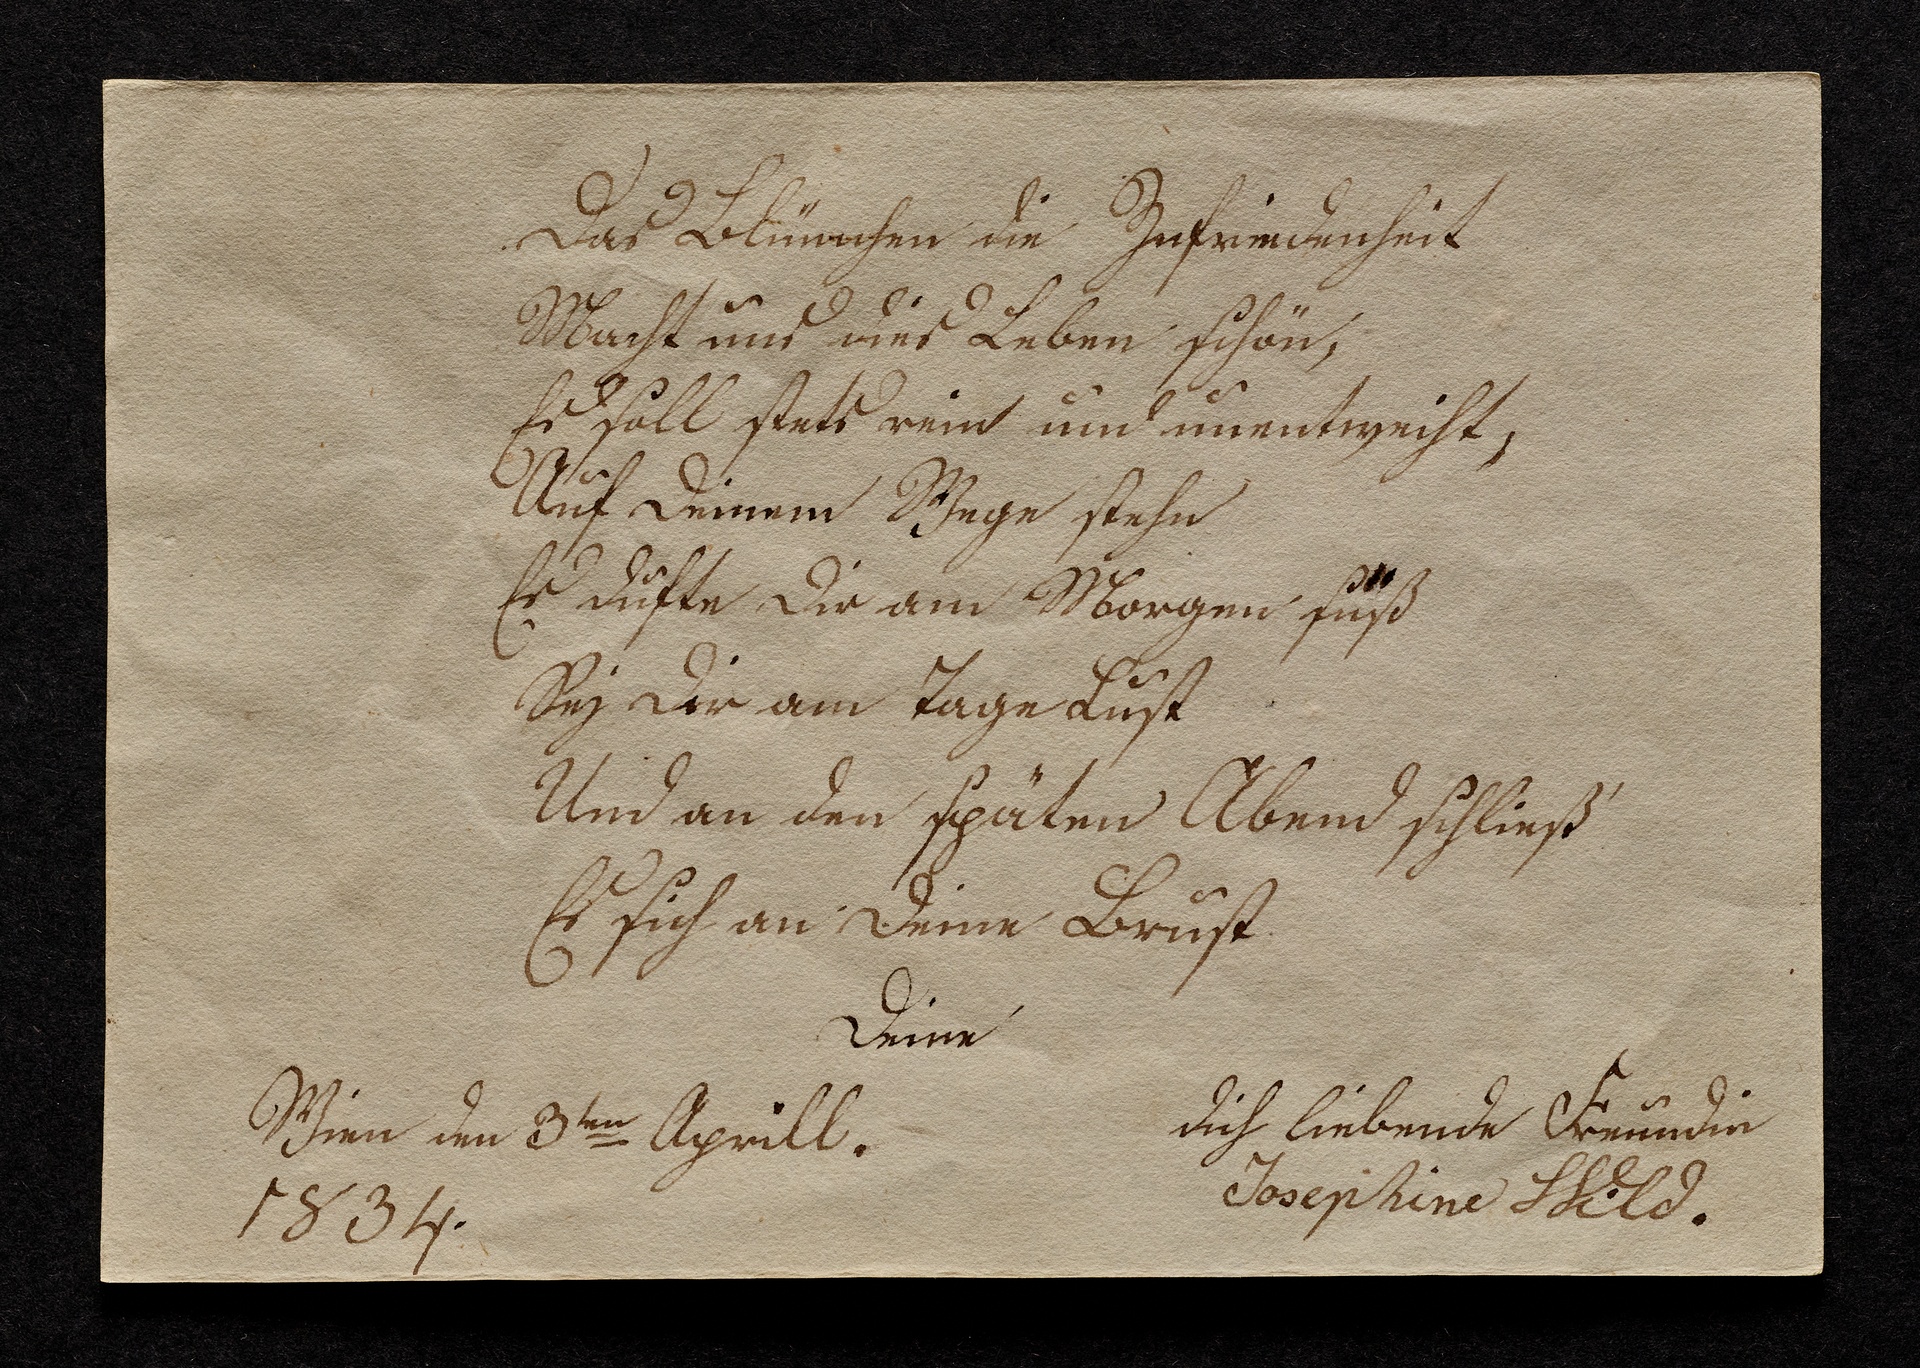 Das Blümchen die Zufriedenheit
Macht uns dies Leben schön,
Es soll stets rein und unentweiht,
Auf Deinem Wege stehn
Es dufte Dir am Morgen süß
Sej Dir am Tage Lust
Und an den späten Abend schließ'
Es sich an Deine Brust
Deine
Wien den 3ten Aprill.
1834.
dich liebende Freundin
Josephine Wild.